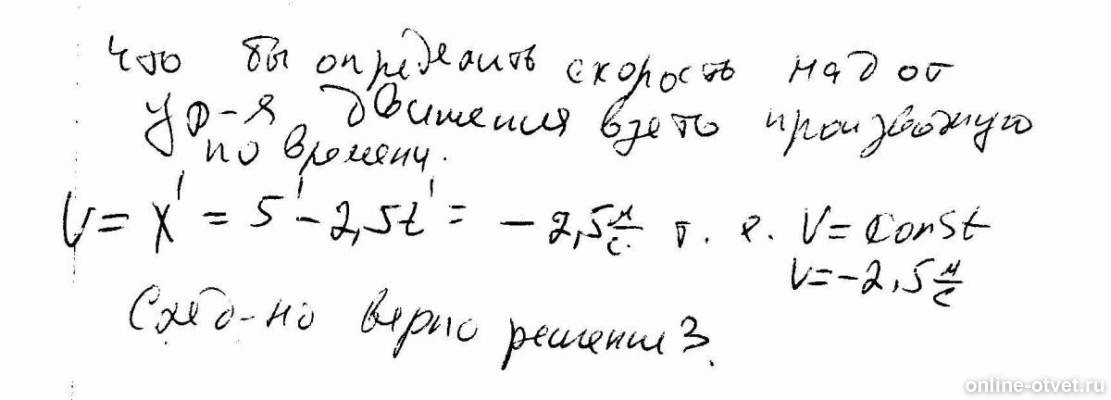 Что бы определить скорость над от
ур-я движения взять производную
по времени.
V = x' = 5' - 2,5t' = - 2,5 м/с т. е. V = const
V = -2,5 м/с
След-но верно решение 3.
online-otvet.ru